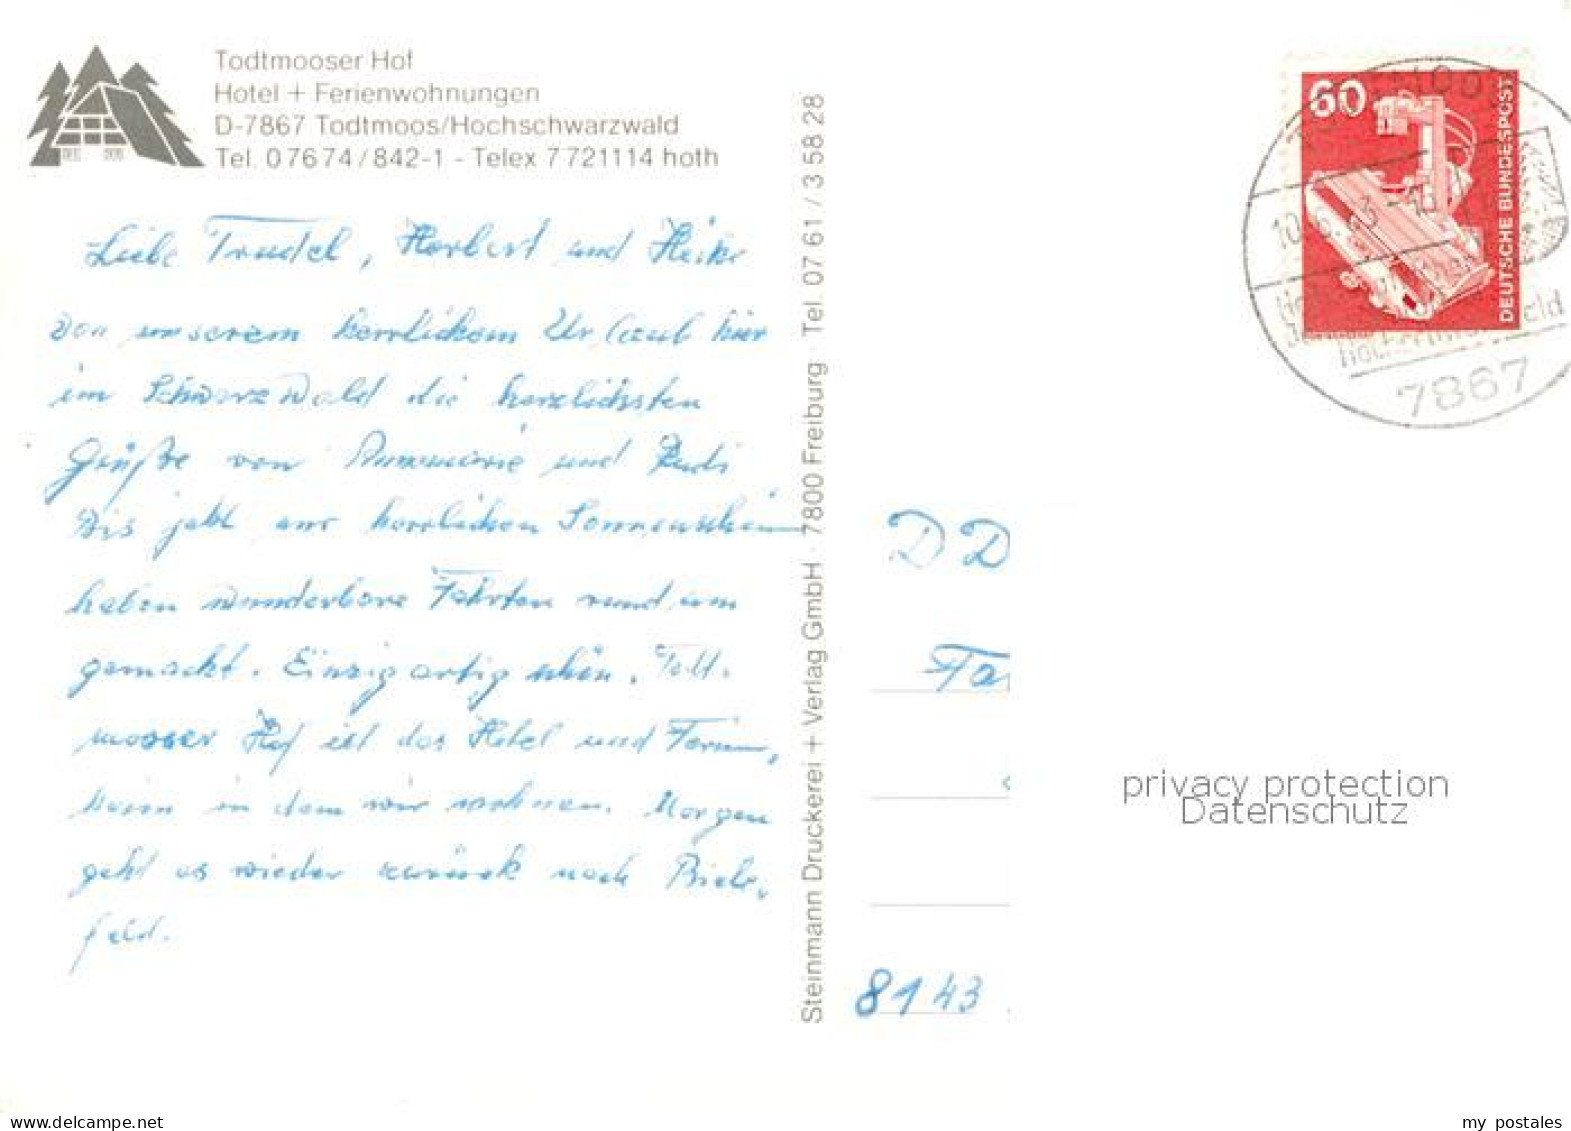 Todtmooser Hof
Hotel + Ferienwohnungen
D-7867 Todtmoos/Hochschwarzwald
Tel. 07674/842-1 - Telex 7721114 hoth
Liebe Trudel, Herbert und Heike
Von unserem herrlichem Urlaub hier
im Schwarzwald die herzlichsten
Grüße von Annemarie und Rudi
Bis jetzt nur herrlichen Sonnenschein
haben wunderbare Fahrten rund um
gemacht. Einzigartig schön. Todt-
mooser Hof ist das Hotel und Ferien,
in dem wir wohnen. Morgen
geht es wieder zurück nach Biele-
feld.
Steinmann Druckerei + Verlag GmbH · 7800 Freiburg · Tel. 0761/3 58 28
60
DEUTSCHE BUNDESPOST
7867
DD
Fa
8143
privacy protection
Datenschutz
www.delcampe.net
my_postales